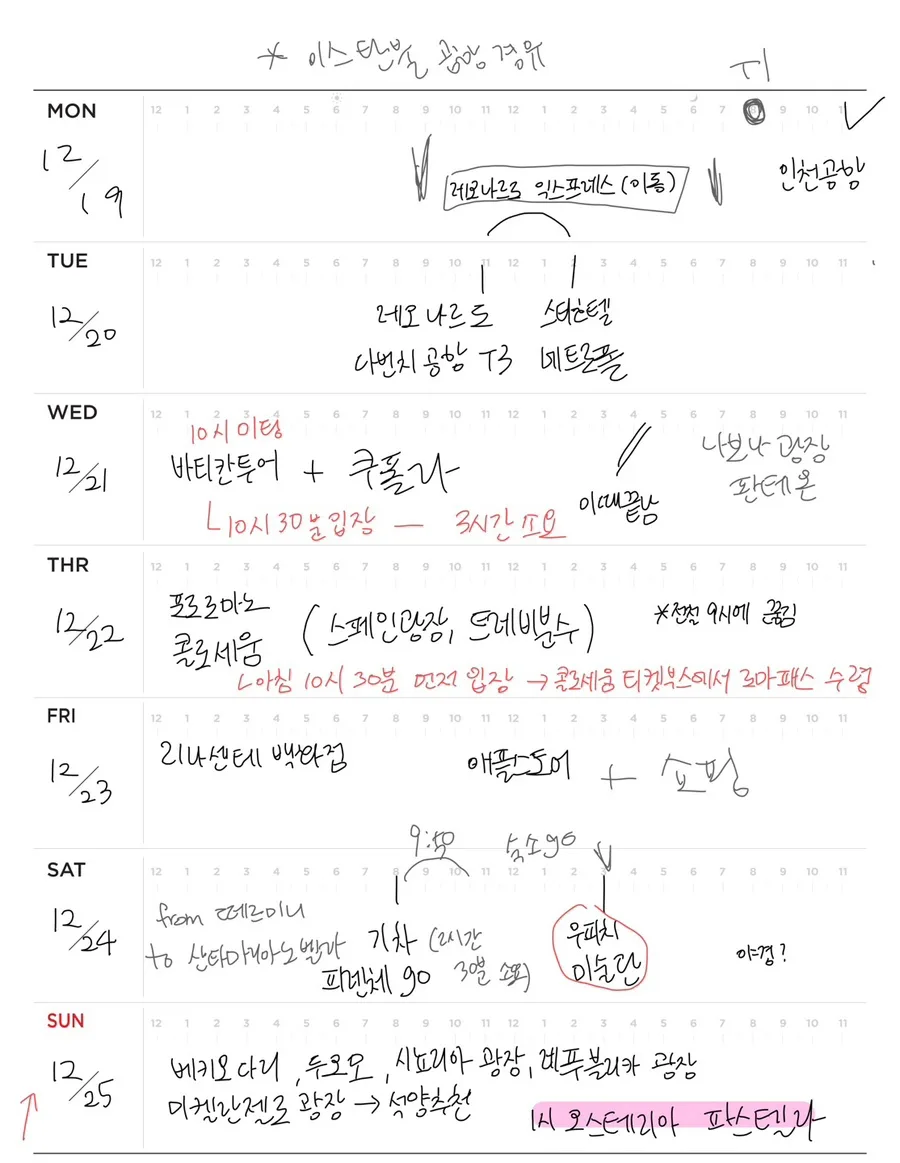 * 이스탄불 공항 경유
T1
MON 12 1 2 3 4 5 6 7 8 9 10 11 12 1 2 3 4 5 6 7 8 9 10 11
12/19
레오나르도 익스프레스 (이동)
인천공항
TUE 12 1 2 3 4 5 6 7 8 9 10 11 12 1 2 3 4 5 6 7 8 9 10 11
12/20
레오나르도
다빈치 공항 T3
스타호텔
메트로폴
WED 12 1 2 3 4 5 6 7 8 9 10 11 12 1 2 3 4 5 6 7 8 9 10 11
12/21
10시 미팅
바티칸투어 + 쿠폴라
이때끝남
나보나 광장
판테온
10시 30분 입장 — 3시간 소요
THR 12 1 2 3 4 5 6 7 8 9 10 11 12 1 2 3 4 5 6 7 8 9 10 11
12/22
포로로마노
콜로세움
(스페인광장, 트레비분수)
*전철 9시에 끊김
아침 10시 30분 먼저 입장 → 콜로세움 티켓부스에서 로마패스 수령
FRI 12 1 2 3 4 5 6 7 8 9 10 11 12 1 2 3 4 5 6 7 8 9 10 11
12/23
리나센테 백화점
애플스토어 + 쇼핑
9:50
숙소 go
SAT 12 1 2 3 4 5 6 7 8 9 10 11 12 1 2 3 4 5 6 7 8 9 10 11
12/24
from 떼르미니
to 산타마리아노벨라
기차 (2시간
30분 소요)
피렌체 go
우피치
미술관
야경?
SUN 12 1 2 3 4 5 6 7 8 9 10 11 12 1 2 3 4 5 6 7 8 9 10 11
12/25
베키오다리, 두오모, 시뇨리아 광장, 레푸블리카 광장
미켈란젤로 광장 → 석양추천
1시 오스테리아 파스텔라